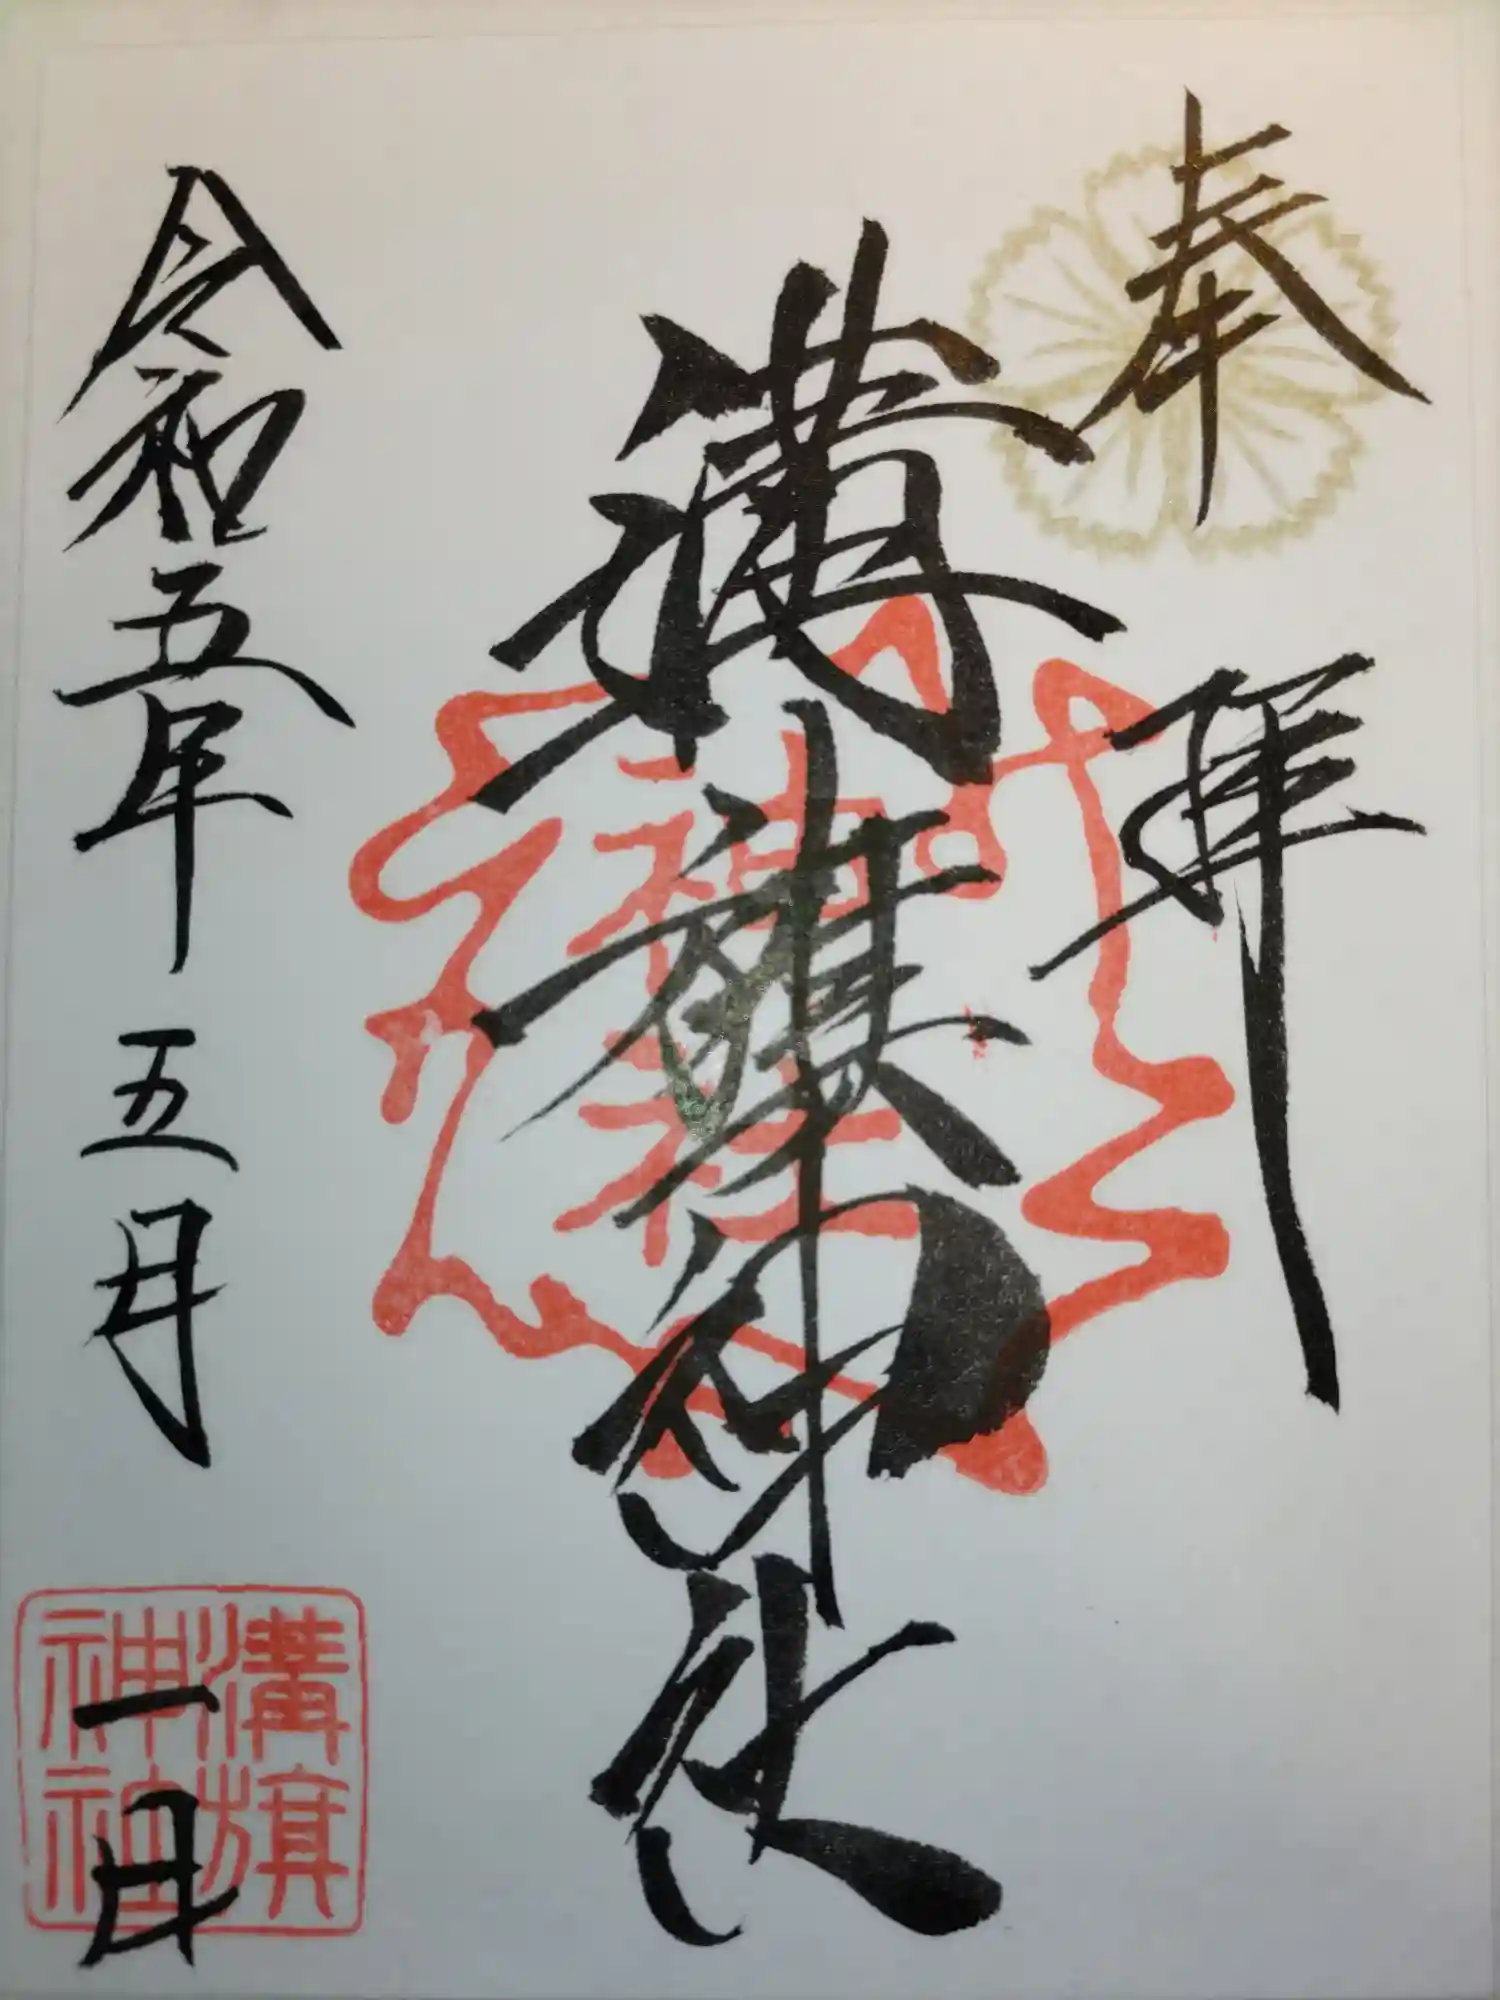 奉拝
溝旗神社
令和五年五月一日
神社
溝旗
神社